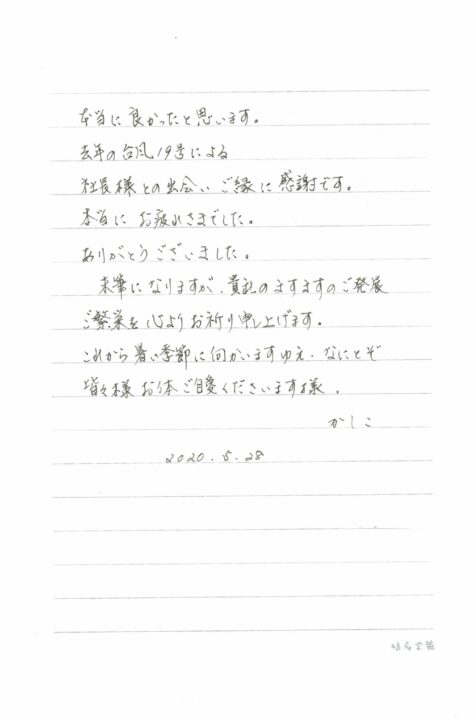 本当に良かったと思います。
去年の台風19号による
社長様との出会い ご縁に感謝です。
本当に お疲れさまでした。
ありがとうございました。
末筆になりますが、貴社のますますのご発展
ご繁栄を心よりお祈り申し上げます。
これから暑い季節に向かいますゆえ、なにとぞ
皆々様 お体ご自愛くださいます様。
かしこ
2020.5.28